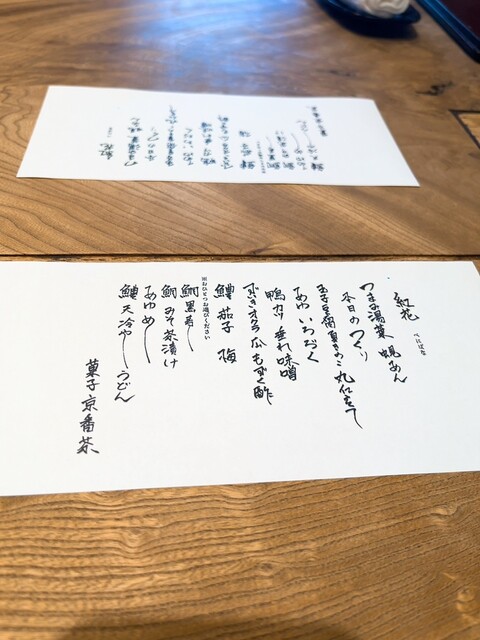 紅花
べにばな
つまみ湯葉 蜆あん
本日のつくり
玉子豆腐 夏きのこ 丸仕立て
あゆ いちぢく
鴨ロース 垂れ味噌
ずいき オクラ 瓜 もずく酢
鱧 茄子 梅
※おひとつお選びください
鯛黒寿し
鯛みそ茶漬け
あゆめし
鱧天冷やしうどん
菓子 京番茶